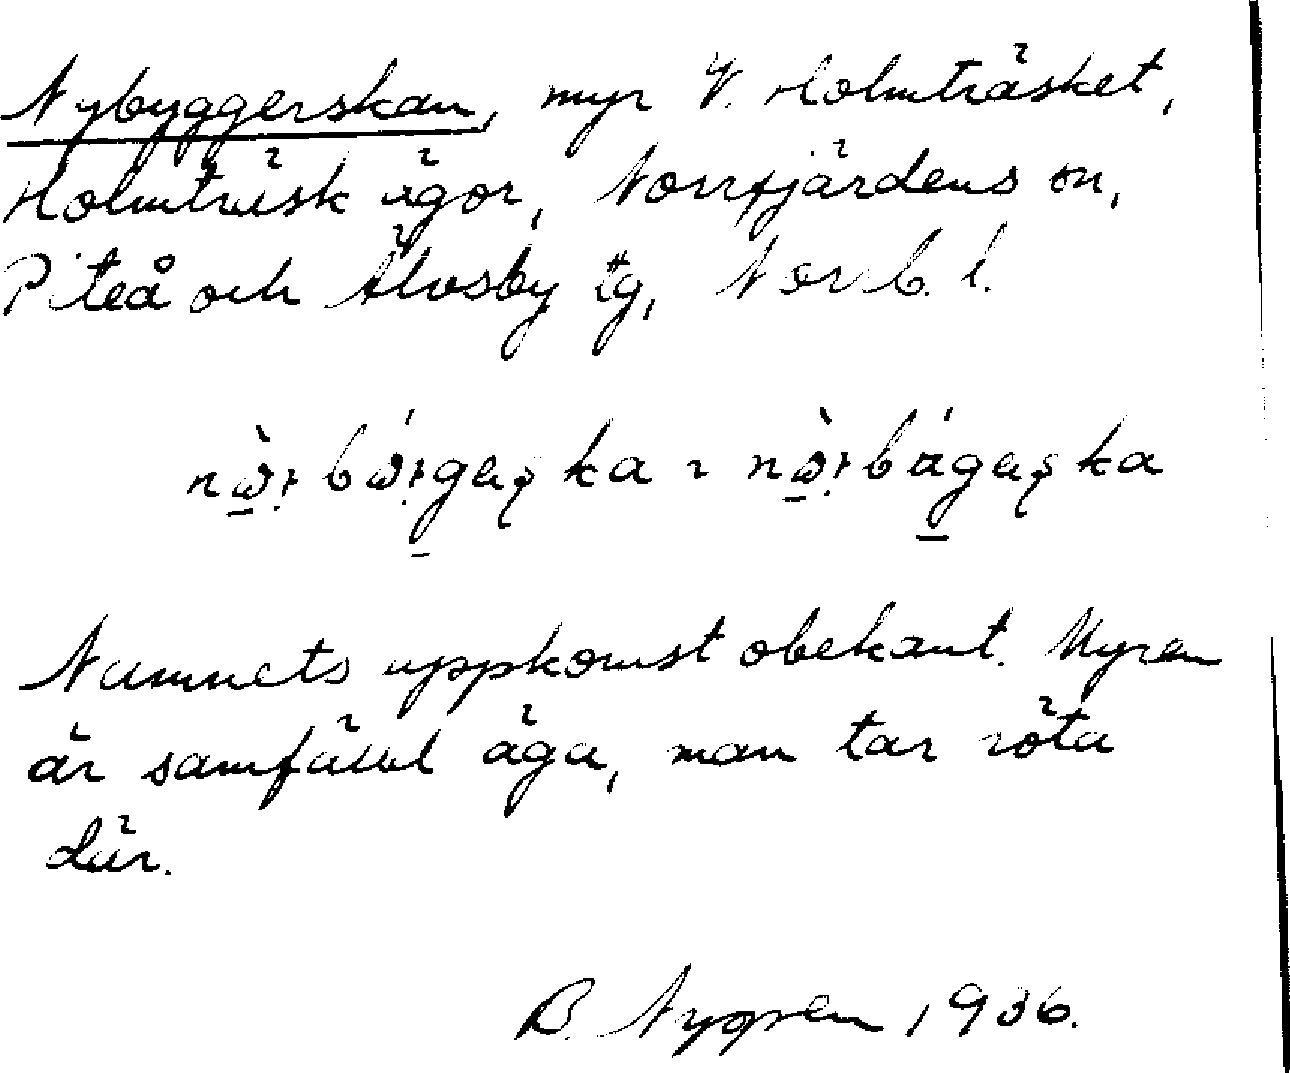 Nybyggerskan, myr V. Holmträsket,
Holmträsk ägor, Norrfjärdens sn,
Piteå och Älvsby tg, Norrb. l.
Namnets uppkomst obekant. Myren
är samfälld äga, man tar röta
där.
B. Nygren 1936.